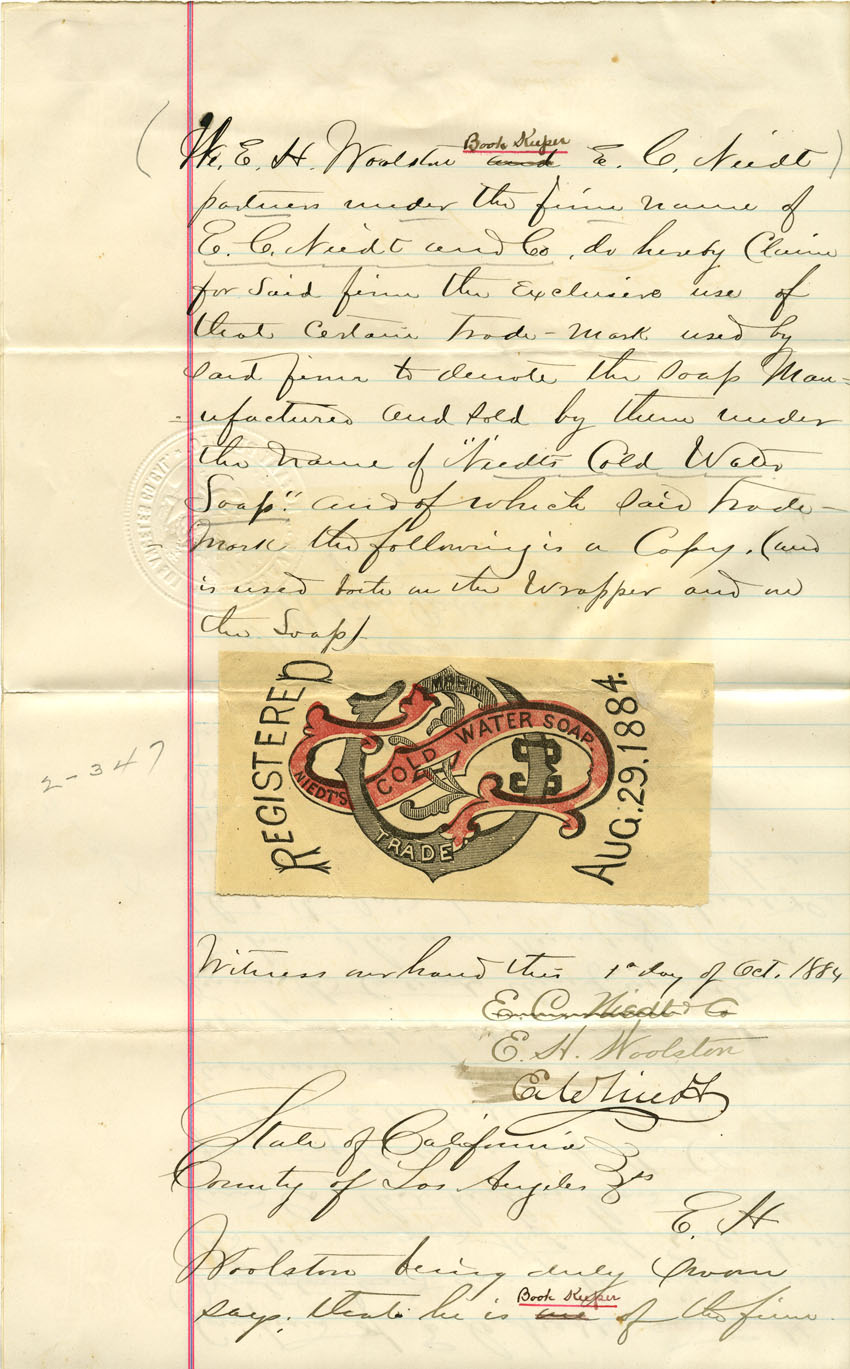 We, E. H. Woolston Book Keeper and E. C. Niedt
partners under the firm name of
E. C. Niedt and Co, do hereby Claim
for said firm the exclusive use of
that certain trade-mark used by
said firm to denote the soap Man-
-ufactured and sold by them under
the name of "Niedt's Cold Water
Soap". and of which said trade-
mark the following is a Copy. (and
is used both on the Wrapper and on
the Soap)
REGISTERED
MARK
NIEDT'S COLD WATER SOAP.
TRADE
AUG. 29. 1884.
2-347
Witness our hand this 1st day of Oct. 1884
E. C. Niedt & Co
E. H. Woolston
E. C. Niedt
State of California
County of Los Angeles ss
E. H
Woolston being duly sworn
says, that he is Book Keeper one of the firm